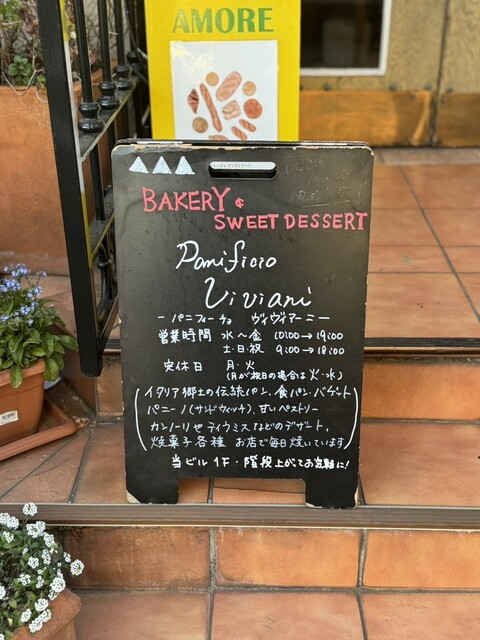 AMORE
BAKERY &
SWEET DESSERT
Panificio
Viviani
ー パニフィーチョ ヴィヴィアーニ ー
営業時間 水〜金 10:00→19:00
土・日・祝 9:00→18:00
定休日 月・火
(月が祝日の場合は火・水)
イタリア郷土の伝統パン、食パン・バゲット
パニーノ(サンドウィッチ)、甘いペストリー
カンノーリやティラミスなどのデザート、
焼菓子各種 お店で毎日焼いています
当ビル1F・階段上がってお気軽に!